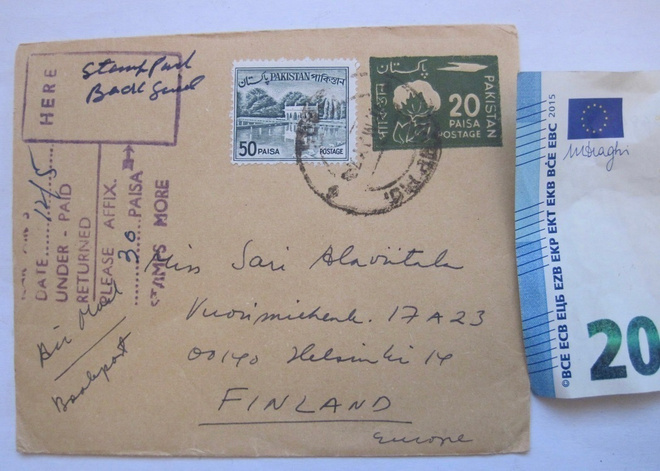 HERE
Stamp Paid
Back Side
DATE 12/5
UNDER - PAID
RETURNED
PLEASE AFFIX.
30 PAISA
STAMPS MORE
Air Mail
Bookpost
پاکستان PAKISTAN পাকিস্তান
50 PAISA POSTAGE
پاکستان
পাকিস্তান
PAKISTAN
20
PAISA
POSTAGE
Miss Sari Alaviitala
17 A 23
00140 Helsinki 14
FINLAND
Europe
©BCE ECB ЕЦБ EZB EKP EKT EKB BĊE EBC 2015
20